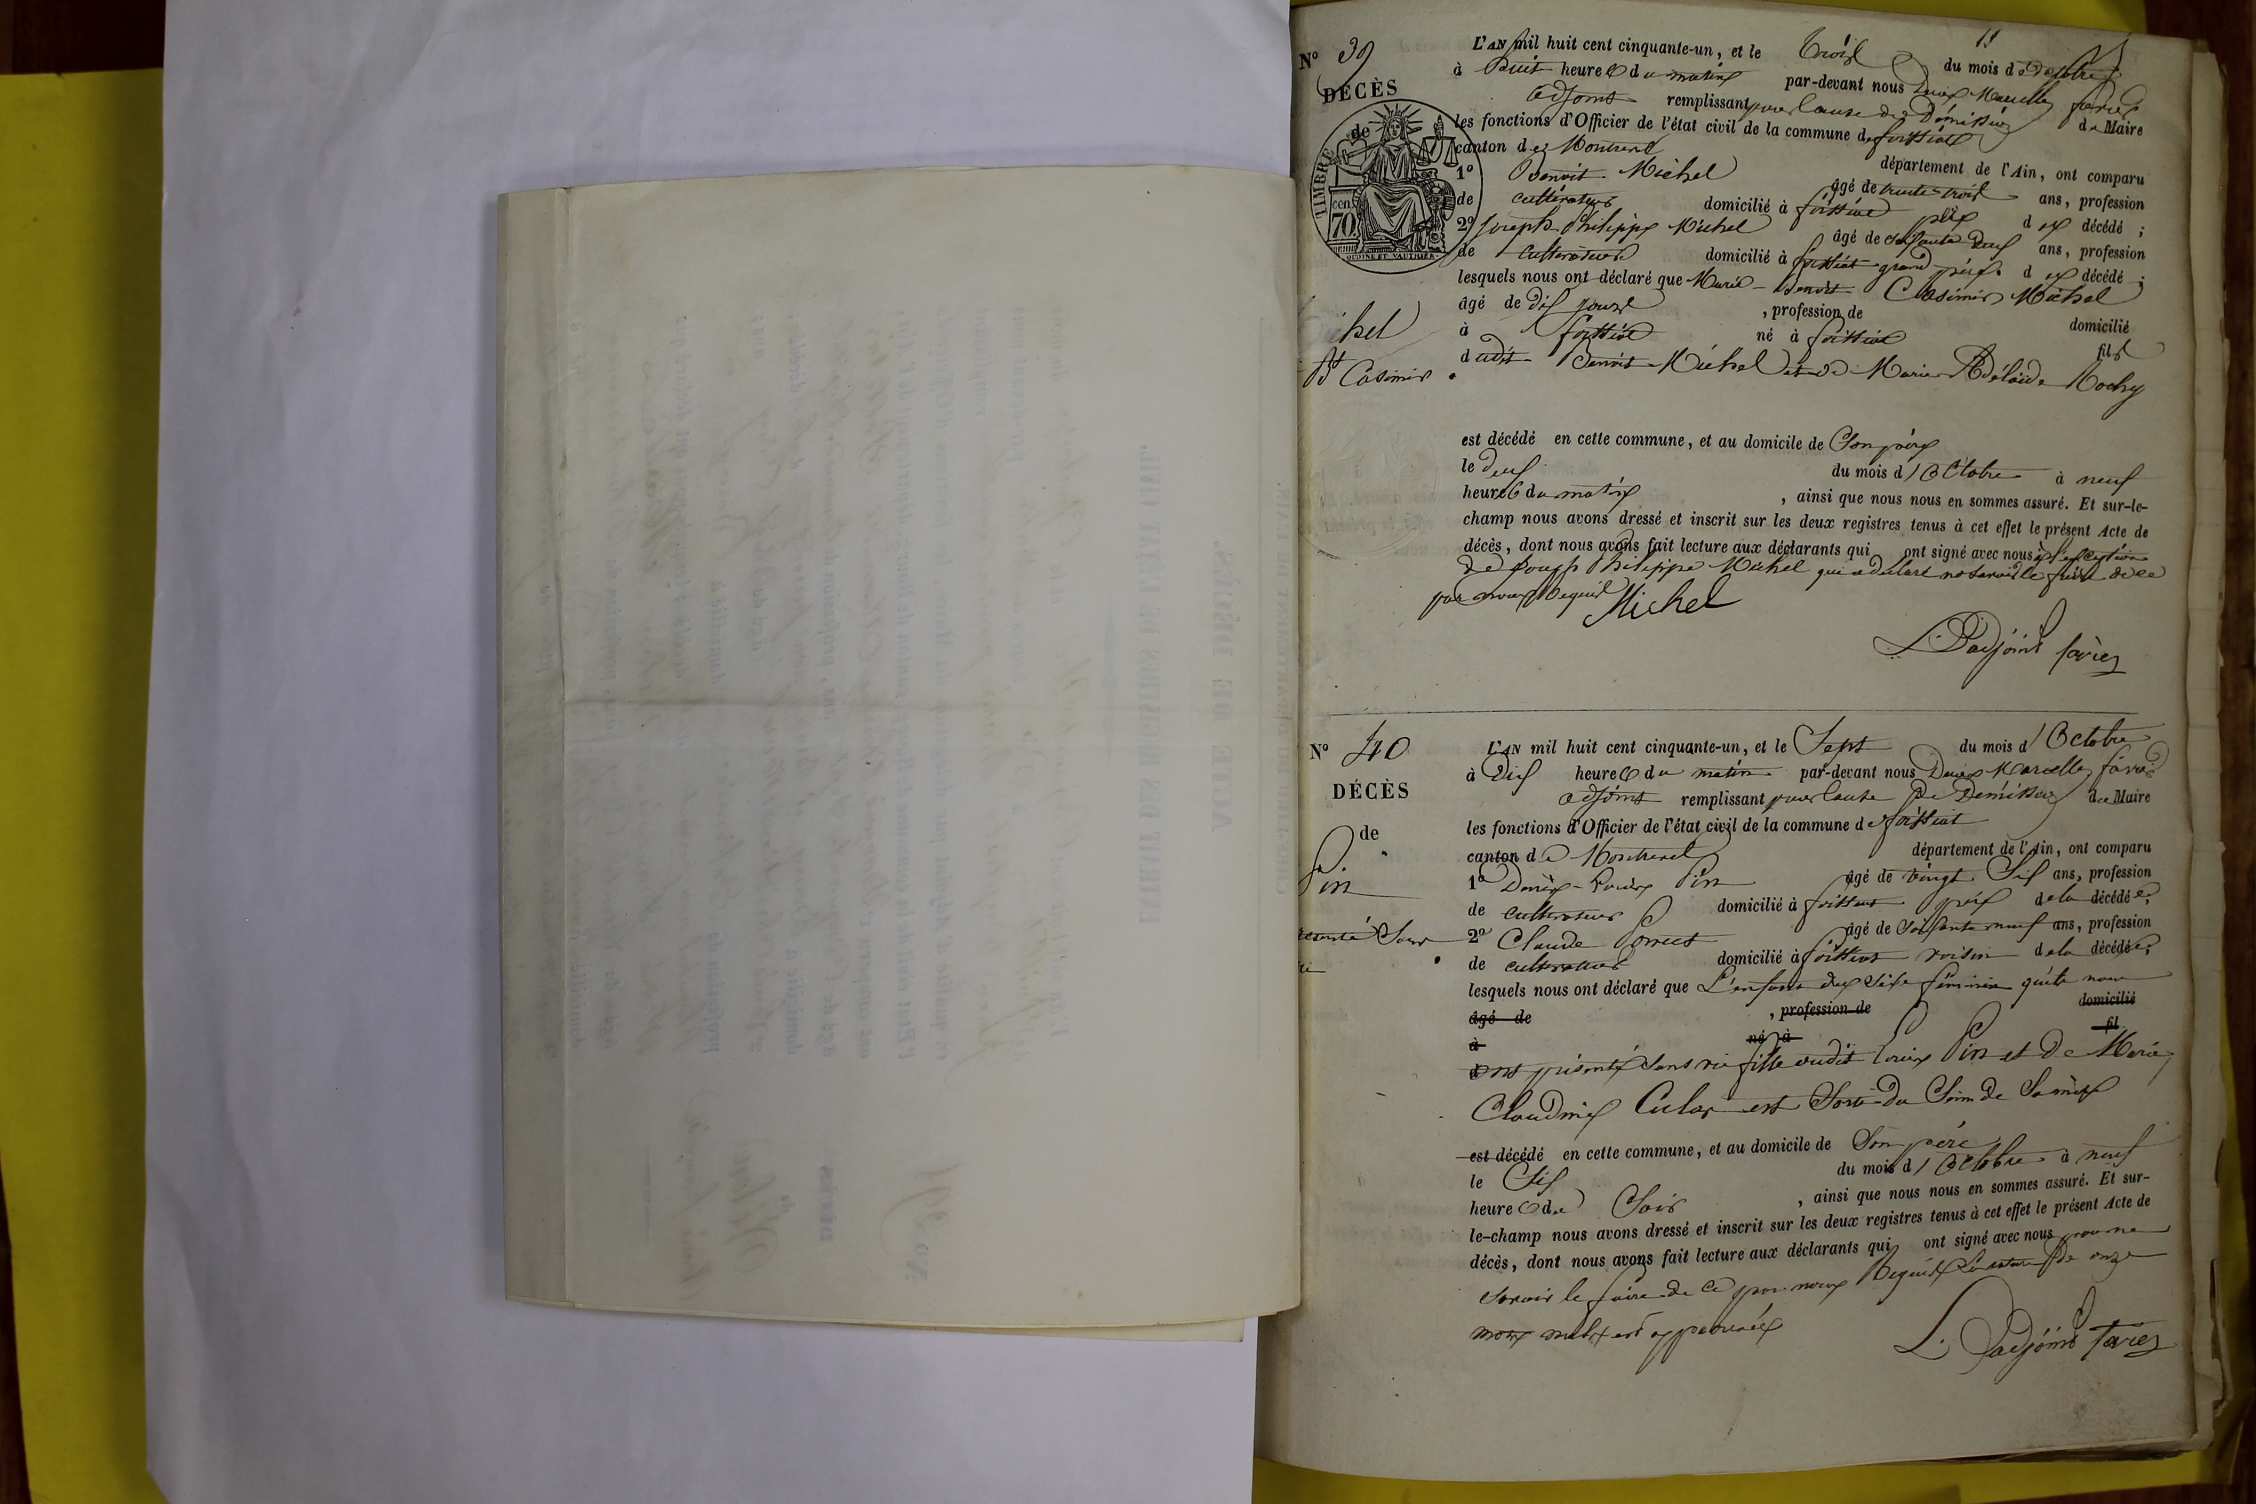 N° 39
DÉCÈS
de
TIMBRE
70 cen.
OUDINÉ ET VAUTHIER
Michel
Bt Casimir
L'AN mil huit cent cinquante-un, et le trois du mois d'octobre
à huit heures du matin par-devant nous Denis Marcelle favier
adjoint remplissant pour cause de Démission de Maire
les fonctions d'Officier de l'état civil de la commune de foissiat
canton de Montrevel département de l'Ain, ont comparu
1° Benoit Michel âgé de trente trois ans, profession
de cultivateur domicilié à foissiat père du décédé ;
2° Joseph Philippe Michel âgé de soixante deux ans, profession
de cultivateur domicilié à foissiat grand père du décédé ;
lesquels nous ont déclaré que Marie Benoit Casimir Michel
âgé de dix jours , profession de domicilié
à foissiat né à foissiat fils
dudit Benoit Michel et de Marie Adélaïde Rochy
est décédé en cette commune, et au domicile de Son père
le deux du mois d'Octobre à neuf
heures du matin , ainsi que nous nous en sommes assuré. Et sur-le-
champ nous avons dressé et inscrit sur les deux registres tenus à cet effet le présent Acte de
décès, dont nous avons fait lecture aux déclarants qui ont signé avec nous à l'exception
de Joseph Philippe Michel qui a déclaré ne savoir le faire de ce
par nous Requis
Michel
L. L'adjoint favier
N° 40
DÉCÈS
de
Pin
présenté Sans
vie
L'AN mil huit cent cinquante-un, et le Sept du mois d'Octobre
à Dix heures du matin par-devant nous Denis Marcelle favier
adjoint remplissant pour cause de Démission de Maire
les fonctions d'Officier de l'état civil de la commune de foissiat
canton de Montrevel département de l'Ain, ont comparu
1° Denis-Louis Pin âgé de vingt Six ans, profession
de cultivateur domicilié à foissiat père de la décédée ;
2° Claude Porret âgé de Soixante neuf ans, profession
de cultivateur domicilié à foissiat voisin de la décédée ;
lesquels nous ont déclaré que L'enfant du Sexe féminin qu'ils nous
âgé de , profession de domicilié
à né à fil
d ont présenté Sans vie fille dudit Louis Pin et de Marie
Claudine Culas est Sorti du Sein de Sa mère
est décédé en cette commune, et au domicile de Son père
le Six du mois d'Octobre à neuf
heures du Soir , ainsi que nous nous en sommes assuré. Et sur-
le-champ nous avons dressé et inscrit sur les deux registres tenus à cet effet le présent Acte de
décès, dont nous avons fait lecture aux déclarants qui ont signé avec nous pour ne
Savoir le faire de ce par nous Requis La rature de onze
mots nuls est approuvée
L. L'adjoint favier